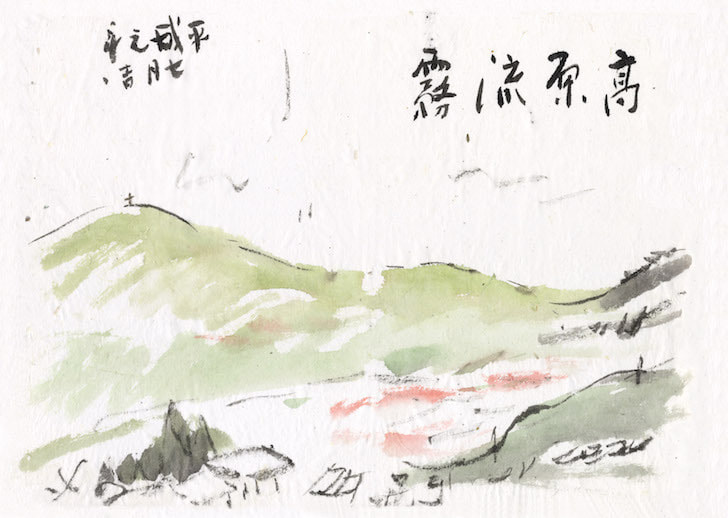 高原流霧
平成元年
七月